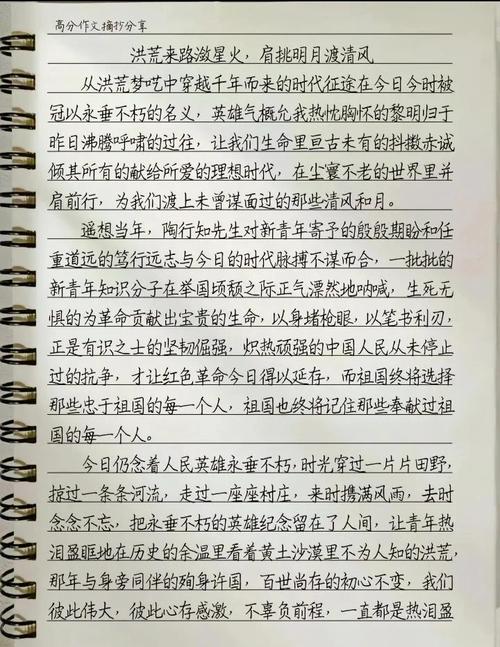 高分作文摘抄分享
洪荒来路潋星火，肩挑明月渡清风
从洪荒梦呓中穿越千年而来的时代征途在今日今时被
冠以永垂不朽的名义，英雄气概允我热忱胸怀的黎明归于
昨日沸腾呼啸的过往，让我们生命里亘古未有的抖擞赤诚
倾其所有的献给所爱的理想时代，在尘寰不老的世界里并
肩前行，为我们渡上未曾谋面过的那些清风和月。
遥想当年，陶行知先生对新青年寄予的殷殷期盼和任
重道远的笃行远志与今日的时代脉搏不谋而合，一批批的
新青年知识分子在举国顷颓之际正气漂然地呐喊，生死无
惧的为革命贡献出宝贵的生命，以身堵枪眼，以笔书利刃，
正是有识之士的坚韧倔强，炽热顽强的中国人民从未停止
过的抗争，才让红色革命今日得以延存，而祖国终将选择
那些忠于祖国的每一个人，祖国也终将记住那些奉献过祖
国的每一个人。
今日仍念着人民英雄永垂不朽，时光穿过一片片田野，
掠过一条条河流，走过一座座村庄，来时携满风雨，去时
念念不忘，把永垂不朽的英雄纪念留在了人间，让青年热
泪盈眶地在历史的余温里看着黄土沙漠里不为人知的洪荒，
那年与身旁同伴的殉身许国，百世尚存的初心不变，我们
彼此伟大，彼此心存感激，不辜负前程，一直都是热泪盈